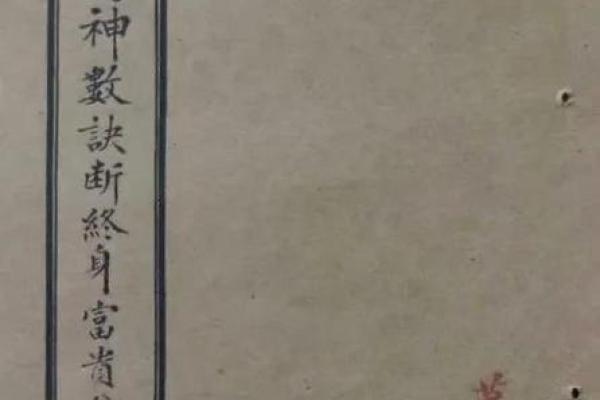 神數訣断終身富貴